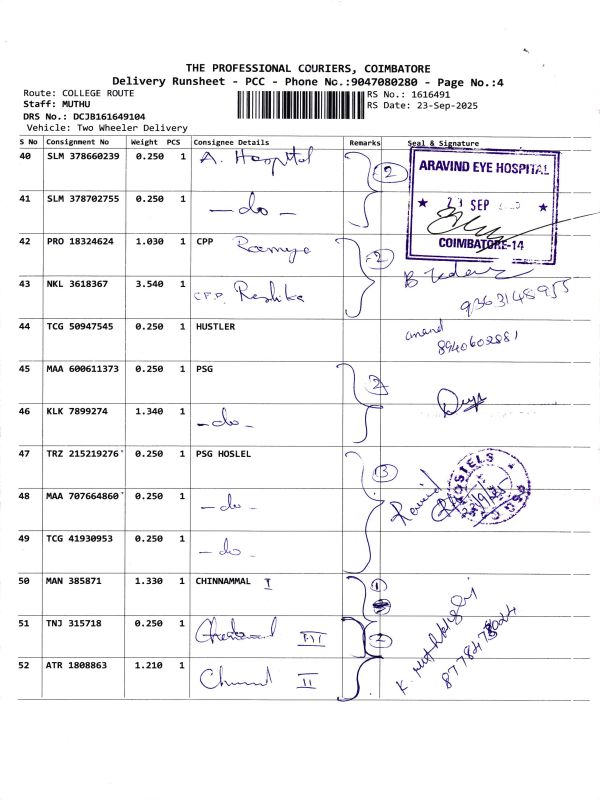 THE PROFESSIONAL COURIERS, COIMBATORE
Delivery Runsheet - PCC - Phone No.:9047080280 - Page No.:4
Route: COLLEGE ROUTE
RS No.: 1616491
Staff: MUTHU
RS Date: 23-Sep-2025
DRS No.: DCJB161649104
Vehicle: Two Wheeler Delivery
S No Consignment No Weight PCS Consignee Details Remarks Seal & Signature
40 SLM 378660239 0.250 1 A. Hospital 2
ARAVIND EYE HOSPITAL
SEP
COIMBATORE-14
41 SLM 378702755 0.250 1 - do -
42 PRO 18324624 1.030 1 CPP Ramya 2
43 NKL 3618367 3.540 1 CPP. Reshika
9363148955
44 TCG 50947545 0.250 1 HUSTLER
anand
8940602881
45 MAA 600611373 0.250 1 PSG 2
46 KLK 7899274 1.340 1 - do -
47 TRZ 215219276 0.250 1 PSG HOSLEL 3
HOSTELS
48 MAA 707664860 0.250 1 - do -
49 TCG 41930953 0.250 1 - do -
50 MAN 385871 1.330 1 CHINNAMMAL I 1
51 TNJ 315718 0.250 1 III 2
52 ATR 1808863 1.210 1 II